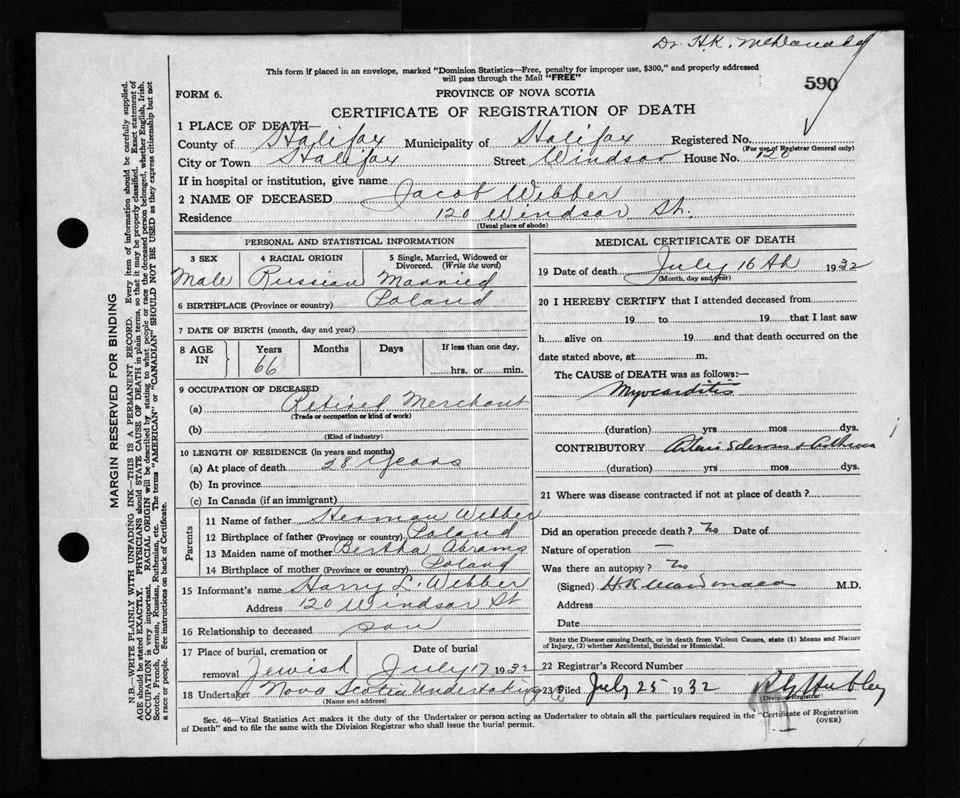 Dr. H.K. McDonald
This form if placed in an envelope, marked "Dominion Statistics—Free, penalty for improper use, $300," and properly addressed
will pass through the Mail "FREE"
590
FORM 6.
PROVINCE OF NOVA SCOTIA
CERTIFICATE OF REGISTRATION OF DEATH
1 PLACE OF DEATH—
County of Halifax Municipality of Halifax Registered No.
(For use of Registrar General only)
City or Town Halifax Street Windsor House No. 120
If in hospital or institution, give name
2 NAME OF DECEASED Jacob Webber
Residence 120 Windsor St.
(Usual place of abode)
PERSONAL AND STATISTICAL INFORMATION
3 SEX 4 RACIAL ORIGIN 5 Single, Married, Widowed or
Divorced. (Write the word)
Male Russian Married
6 BIRTHPLACE (Province or country) Poland
7 DATE OF BIRTH (month, day and year)
8 AGE IN Years Months Days If less than one day,
66 hrs. or min.
9 OCCUPATION OF DECEASED
(a) Retired Merchant
(Trade or occupation or kind of work)
(b)
(Kind of industry)
10 LENGTH OF RESIDENCE (in years and months)
(a) At place of death 28 years
(b) In province
(c) In Canada (if an immigrant)
Parents
11 Name of father Herman Webber
12 Birthplace of father (Province or country) Poland
13 Maiden name of mother Bertha Abrams
14 Birthplace of mother (Province or country) Poland
15 Informant's name Harry L. Webber
Address 120 Windsor St
16 Relationship to deceased son
17 Place of burial, cremation or Date of burial
removal Jewish July 17 1932
18 Undertaker Nova Scotia Undertaking Co
(Name and address)
MEDICAL CERTIFICATE OF DEATH
19 Date of death July 16th 1932
(Month, day and year)
20 I HEREBY CERTIFY that I attended deceased from
19 to 19 that I last saw
h alive on 19 and that death occurred on the
date stated above, at m.
The CAUSE of DEATH was as follows:—
Myocarditis
(duration) yrs mos dys.
CONTRIBUTORY Arterio Sclerosis & Asthma
(duration) yrs mos dys.
21 Where was disease contracted if not at place of death?
Did an operation precede death? No Date of
Nature of operation —
Was there an autopsy? No
(Signed) H K MacDonald M.D.
Address
Date
State the Disease causing Death, or in death from Violent Causes, state (1) Means and Nature
of Injury, (2) whether Accidental, Suicidal or Homicidal.
22 Registrar's Record Number
23 Filed July 25 1932
(Division Registrar)
Sec. 46—Vital Statistics Act makes it the duty of the Undertaker or person acting as Undertaker to obtain all the particulars required in the "Certificate of Registration
of Death" and to file the same with the Division Registrar who shall issue the burial permit. (OVER)
MARGIN RESERVED FOR BINDING
N.B.—WRITE PLAINLY WITH UNFADING INK—THIS IS A PERMANENT RECORD. Every item of information should be carefully supplied.
AGE should be stated EXACTLY. PHYSICIANS should STATE CAUSE OF DEATH in plain terms, so that it may be properly classified. Exact statement of
OCCUPATION is very important. RACIAL ORIGIN will be described by stating to what people or race the deceased person belonged, whether English, Irish,
Scotch, French, German, Russian, Ruthenian, etc. The terms "AMERICAN" or "CANADIAN" SHOULD NOT BE USED as they express citizenship but not
a race or people. See instructions on back of Certificate.